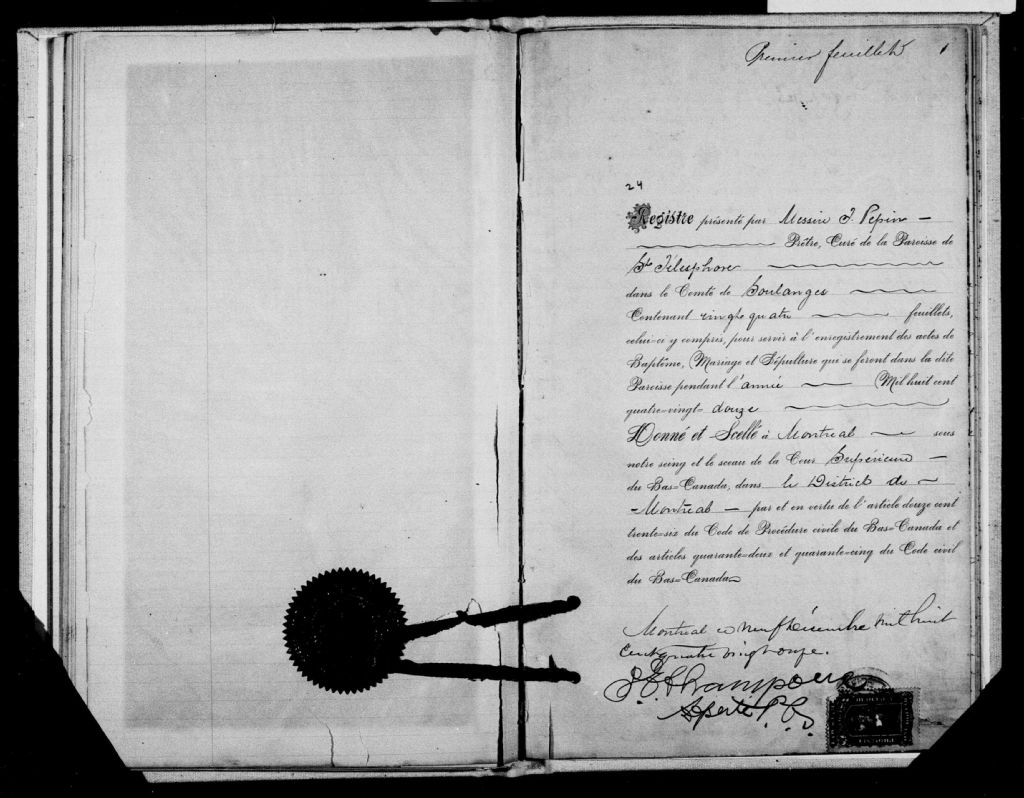 Premier feuillet 1
24
Registre présenté par Messire J. Pepin
Prêtre, Curé de la Paroisse de
St Télesphore
dans le Comté de Soulanges
Contenant vingt quatre feuillets,
celui-ci y compris, pour servir à l'enregistrement des actes de
Baptême, Mariage et Sépulture que se feront dans la dite
Paroisse pendant l'année Mil huit cent
quatre-vingt= douze
Donné et Scellé à Montréal sous
notre seing et le sceau de la Cour Supérieure
du Bas=Canada, dans le District de
Montréal par et en vertu de l'article douze cent
trente=six du Code de Procédure civile du Bas=Canada et
des articles quarante=deux et quarante=cinq du Code civil
du Bas=Canada
Montréal ce neuf Décembre mil huit
cent quatre vingt onze.
J. E. Champoux